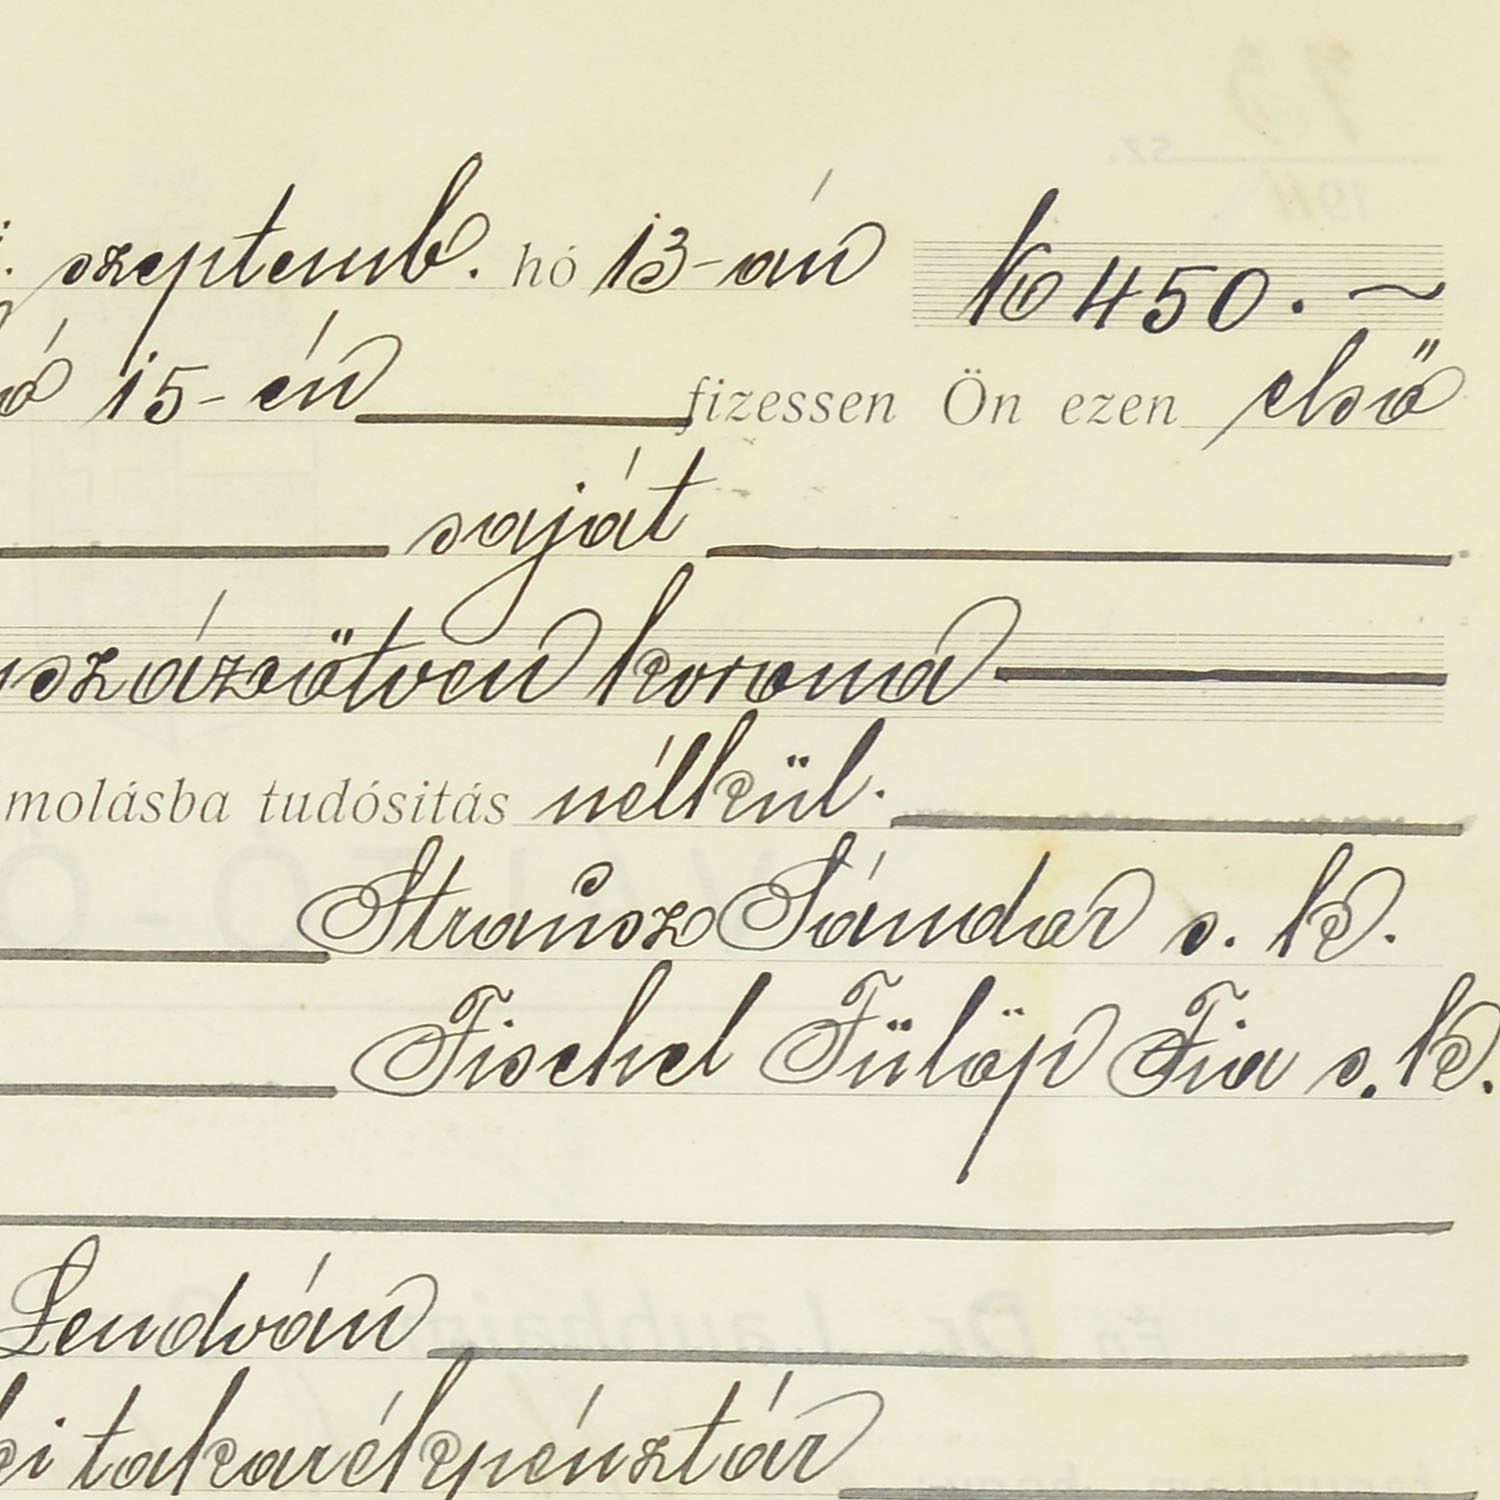 septemb. hó 13-án K 450.~
15-én fizessen Ön ezen első
saját
százötven korona
molásba tudósitás nélkül.
Strausz Sándor s. k.
Fischel Fülöp Fia s. k.
Lendván
ki takarékpénztár